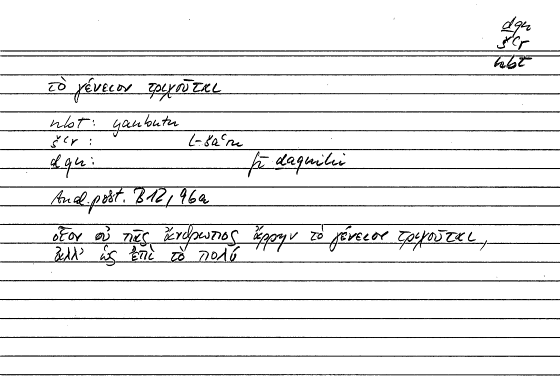 dqn
šʿr
nbt
τὸ γένειον τριχοῦται
nbt: yanbutu
šʿr: l-šaʿru
dqn: fī daqnihi
And. post. B 12, 96a
οἷον οὐ πᾶς ἄνθρωπος ἄρρην τὸ γένειον τριχοῦται,
ἀλλ' ὡς ἐπὶ τὸ πολύ